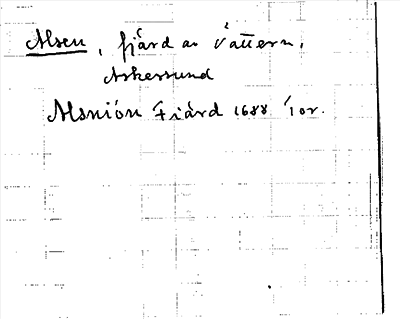 Alsen, fjärd av Vättern,
Askersund
Alsniön Fiård 1688 for.